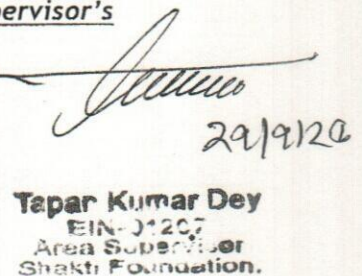 pervisor's
29/9/20
Tapan Kumar Dey
EIN-01207
Area Supervisor
Shakti Foundation.